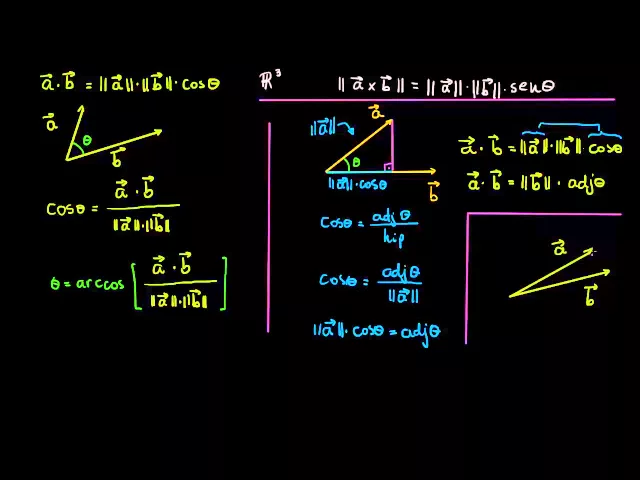 a⃗ · b⃗ = ||a⃗|| · ||b⃗|| · cosθ
a⃗
θ
b⃗
cosθ = a⃗ · b⃗ / ||a⃗|| · ||b⃗||
θ = arccos [ a⃗ · b⃗ / ||a⃗|| · ||b⃗|| ]
ℝ³
||a⃗ x b⃗|| = ||a⃗|| · ||b⃗|| · senθ
||a⃗||
a⃗
θ
||a⃗|| · cosθ
b⃗
cosθ = adjθ / hip
cosθ = adjθ / ||a⃗||
||a⃗|| · cosθ = adjθ
a⃗ · b⃗ = ||a⃗|| · ||b⃗|| · cosθ
a⃗ · b⃗ = ||b⃗|| · adjθ
a⃗
b⃗